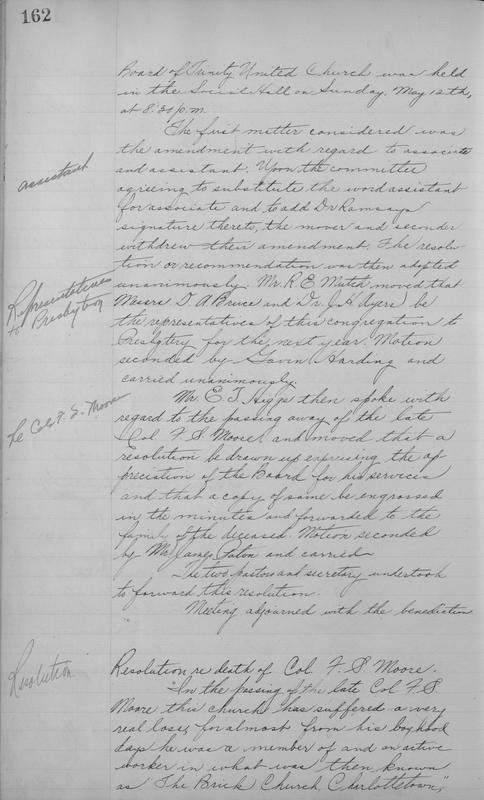 162
Board of Trinity United Church was held
in the Social Hall on Sunday, May 12th,
at 8:30 p.m.
The first matter considered was
the amendment with regard to associate
assistant
and assistant. Upon the committee
agreeing to substitute the word assistant
for associate and to add Dr Ramsay's
signature thereto, the mover and seconder
withdrew their amendment. The resolu-
tion or recommendation was then adopted
Representatives
to Presbytery
unanimously. Mr. R. E. Mutch moved that
Messrs D A Bruce and Dr. J. H. Ayers be
the representatives of this congregation to
Presbytry for the next year. Motion
seconded by Gavin Harding and
carried unanimously.
Re Col. F. S. Moore
Mr. E. T. Higgs then spoke with
regard to the passing away of the late
Col F. S Moore, and moved that a
resolution be drawn up expressing the ap-
preciation of the Board for his services
and that a copy of same be engrossed
in the minutes and forwarded to the
family of the deceased. Motion seconded
by Mr James Paton and carried
The two pastors and secretary undertook
to forward this resolution.
Meeting adjourned with the benediction
Resolution
Resolution re death of Col F. S Moore.
"In the passing of the late Col F. S.
Moore this church has suffered a very
real loss, for almost from his boyhood
days he was a member of and an active
worker in what was then known
as "The Brick Church, Charlottetown,"